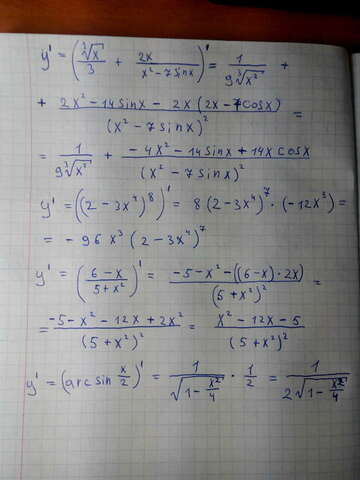 y' = (∛x/3 + 2x/(x² - 7sinx))' = 1/(9∛x²) +
+ (2x² - 14sinx - 2x(2x - 7cosx))/(x² - 7sinx)² =
= 1/(9∛x²) + (-4x² - 14sinx + 14xcosx)/(x² - 7sinx)²
y' = ((2 - 3x⁴)⁸)' = 8(2 - 3x⁴)⁷ · (-12x³) =
= - 96x³(2 - 3x⁴)⁷
y' = ((6 - x)/(5 + x²))' = (-5 - x² - ((6 - x) · 2x))/(5 + x²)² =
= (-5 - x² - 12x + 2x²)/(5 + x²)² = (x² - 12x - 5)/(5 + x²)²
y' = (arcsin x/2)' = 1/√(1 - x²/4) · 1/2 = 1/(2√(1 - x²/4))